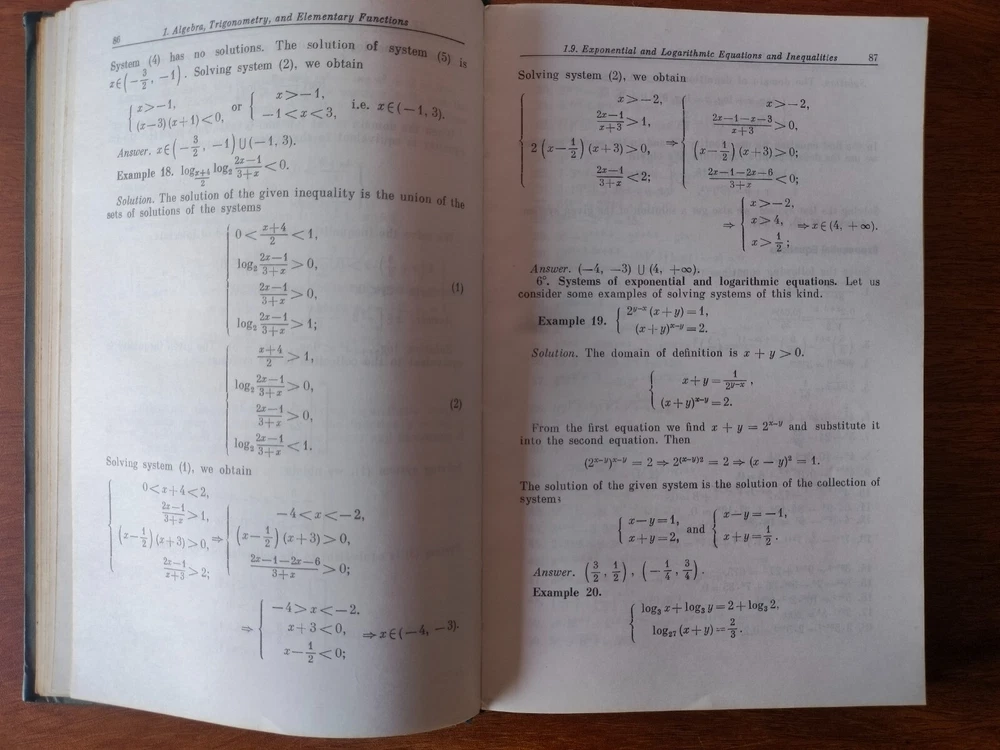 86
1. Algebra, Trigonometry, and Elementary Functions
System (4) has no solutions. The solution of system (5) is
x∈(−3/2, −1). Solving system (2), we obtain
{ x>−1, (x−3)(x+1)<0, or { x>−1, −1<x<3, i.e. x∈(−1, 3).
Answer. x∈(−3/2, −1)∪(−1, 3).
Example 18. log_{(x+4)/2} log₂ (2x−1)/(3+x) <0.
Solution. The solution of the given inequality is the union of the
sets of solutions of the systems
{ 0< (x+4)/2 <1,
log₂ (2x−1)/(3+x) >0,
(2x−1)/(3+x) >0, (1)
log₂ (2x−1)/(3+x) >1;
{ (x+4)/2 >1,
log₂ (2x−1)/(3+x) >0,
(2x−1)/(3+x) >0, (2)
log₂ (2x−1)/(3+x) <1.
Solving system (1), we obtain
{ 0<x+4<2, (2x−1)/(3+x) >1, (x−1/2)(x+3)>0, (2x−1)/(x+3) >2; ⇒ { −4<x<−2, (x−1/2)(x+3)>0, (2x−1−2x−6)/(3+x) >0;
⇒ { −4>x<−2, x+3<0, x−1/2<0; ⇒ x∈(−4, −3).
1.9. Exponential and Logarithmic Equations and Inequalities
87
Solving system (2), we obtain
{ x>−2, (2x−1)/(x+3) >1, 2(x−1/2)(x+3)>0, (2x−1)/(3+x) <2; ⇒ { x>−2, (2x−1−x−3)/(x+3) >0, (x−1/2)(x+3)>0; (2x−1−2x−6)/(3+x) <0;
⇒ { x>−2, x>4, x>1/2; ⇒ x∈(4, +∞).
Answer. (−4, −3) ∪ (4, +∞).
6°. Systems of exponential and logarithmic equations. Let us
consider some examples of solving systems of this kind.
Example 19. { 2^{y−x}(x+y)=1, (x+y)^{x−y}=2.
Solution. The domain of definition is x + y > 0.
{ x+y= 1/2^{y−x},
(x+y)^{x−y}=2.
From the first equation we find x + y = 2^{x−y} and substitute it
into the second equation. Then
(2^{x−y})^{x−y} = 2 ⇒ 2^{(x−y)2} = 2 ⇒ (x − y)² = 1.
The solution of the given system is the solution of the collection of
systems
{ x−y=1, x+y=2, and { x−y=−1, x+y=1/2.
Answer. (3/2, 1/2), (−1/4, 3/4).
Example 20.
{ log₃ x+log₃ y=2+log₃ 2,
log₂₇ (x+y)=2/3.